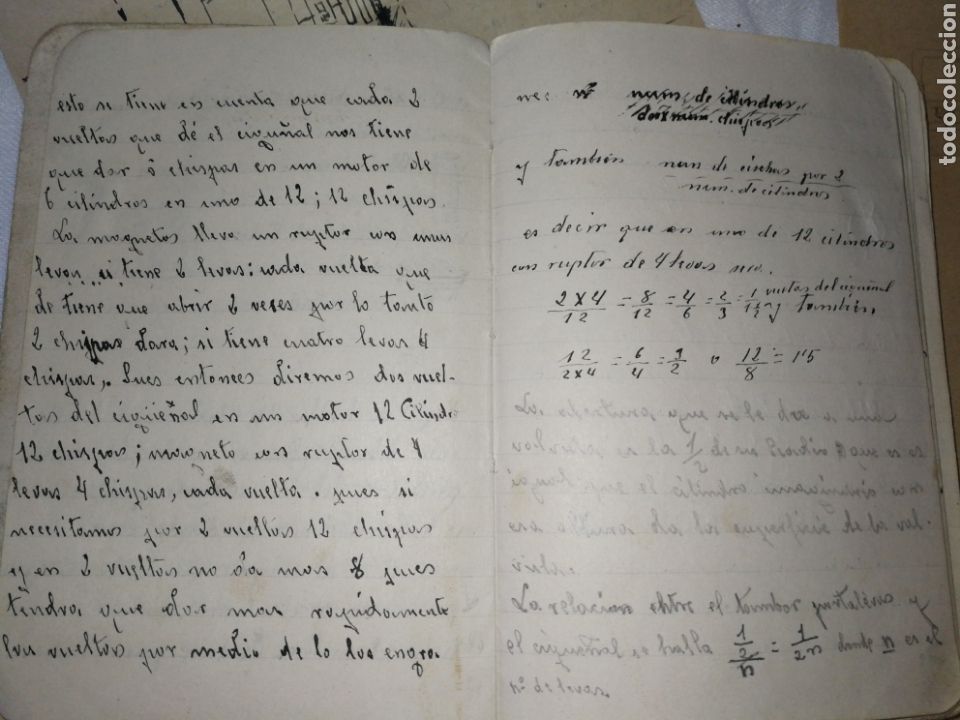 esto si tiene en cuenta que cada 2
vueltas que dé el cigüñal nos tiene
que dar 6 chispas en un motor de
6 cilindros en uno de 12; 12 chispas.
La magnetos lleva un ruptor con unas
levas, si tiene 2 levas: cada vuelta que
dé tiene que abrir 2 veses por lo tanto
2 chispas dara; si tiene cuatro levas 4
chispas,. Pues entonces diremos dos vuel-
tas del cigüeñal en un motor 12 Cilindro
12 chispas; magneto con ruptor de 4
levas 4 chispas, cada vuelta. pues si
necesitamos por 2 vueltas 12 chispas
y en 2 vueltas no da mas 8 pues
tendra que dar mas rapidamente
las vueltas por medio de lo los engra
num. de cilindros
y también num de por 2
num. de cilindros
es decir que en uno de 12 cilindros
con ruptor de 4 levas
2x4/12 = 8/12 = 4/6 = 2/3 = vueltas del cigueñal
y también,
12/2x4 = 6/4 = 3/2 o 12/8 = 1'5
La abertura que se le da a una
valvula es la 1/2 de su Radio que es es
igual que el cilindro imaginario con
esa altura da la superficie de la val-
vula.
La relacion entre el tambor portalevas y
el cigueñal se halla 1/2/n = 1/2n donde n es el
nº de levas.
todocoleccion